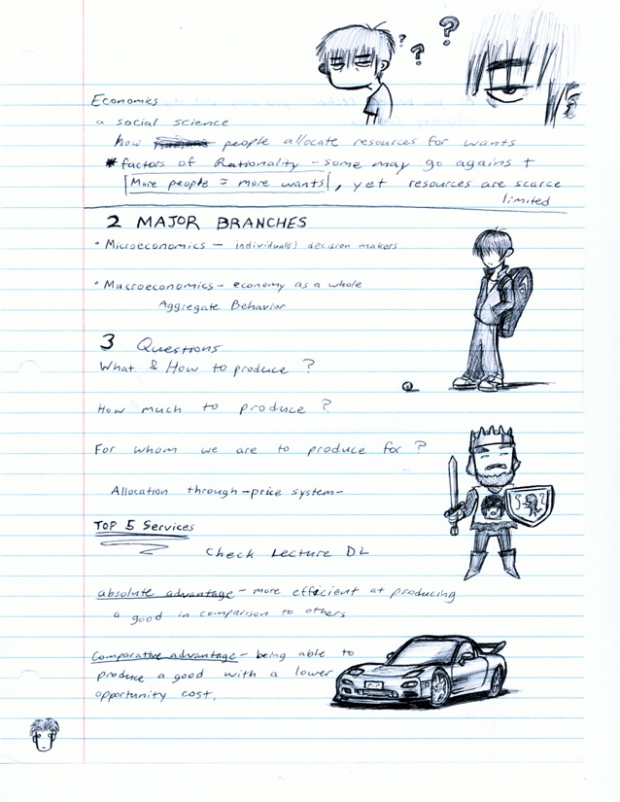 Economics
a social science
how people allocate resources for wants
* factors of Rationality - some may go against
More people = more wants, yet resources are scarce
limited
2 MAJOR BRANCHES
• Microeconomics - individual(s) decision makers
• Macroeconomics - economy as a whole
Aggregate Behavior
3 Questions
What & How to produce ?
How much to produce ?
For whom we are to produce for ?
Allocation through - price system -
TOP 5 Services
Check Lecture D2
absolute advantage - more efficient at producing
a good in comparison to others
Comparative advantage - being able to
produce a good with a lower
opportunity cost.